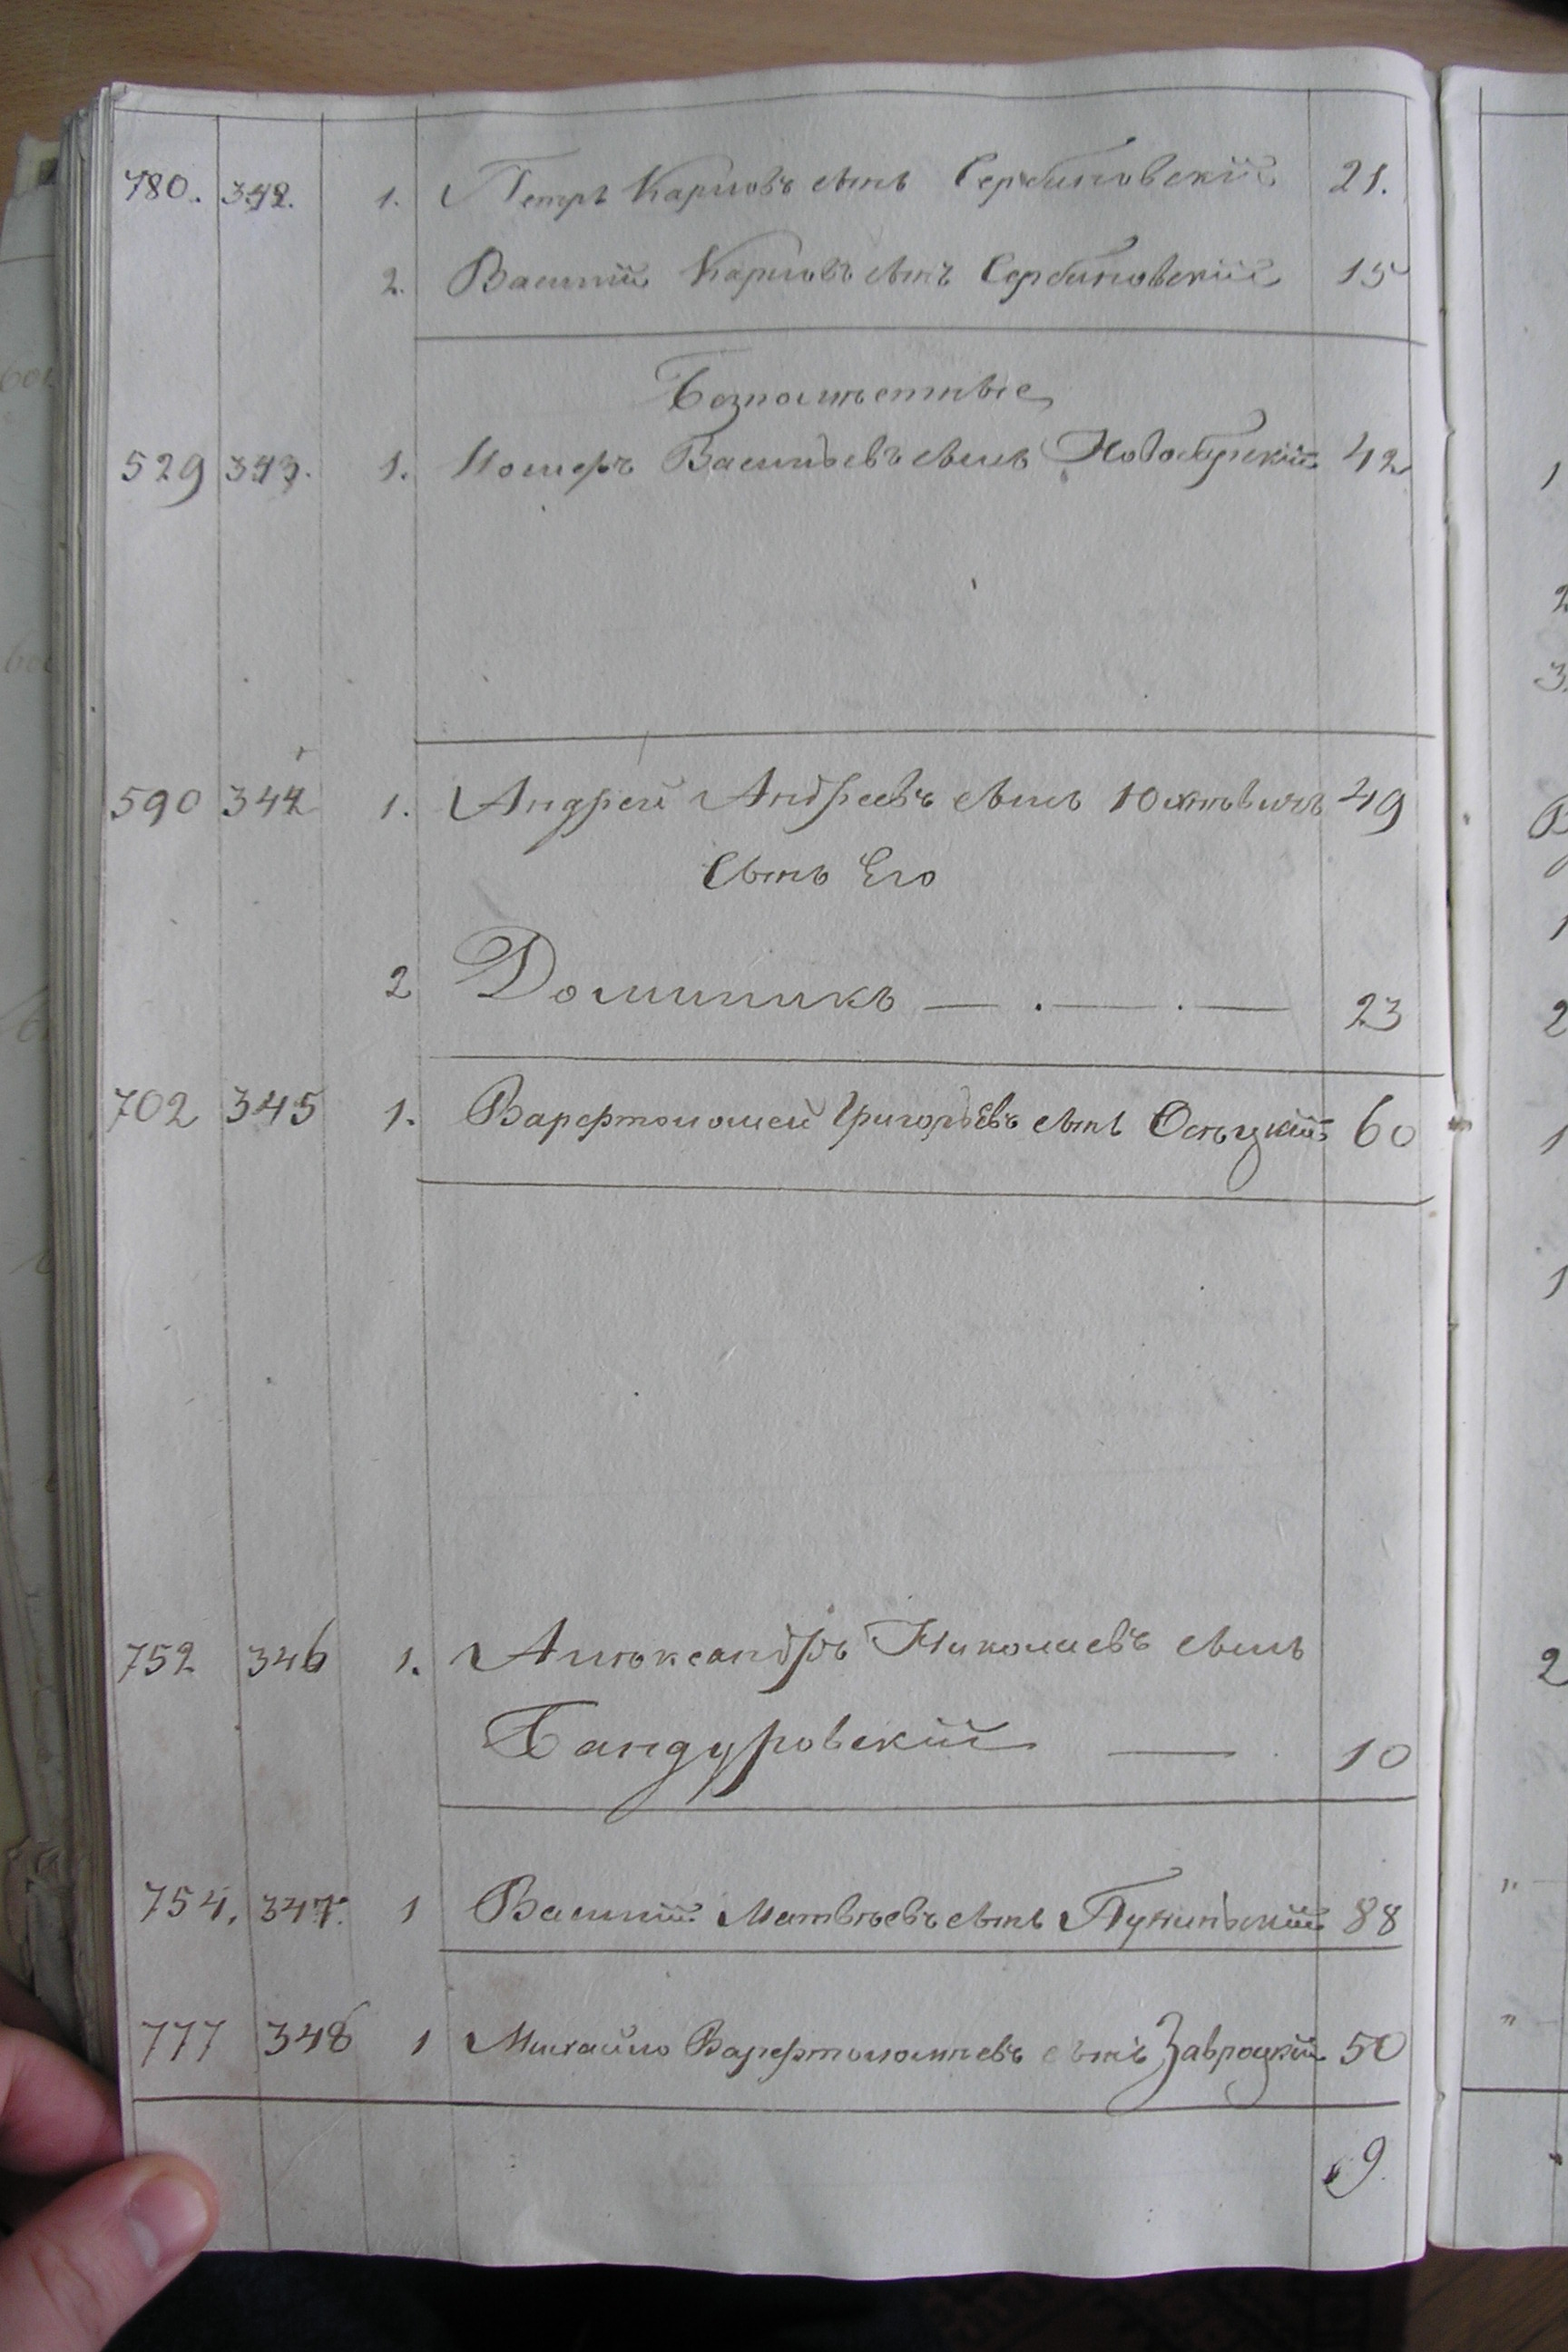 780. 342. 1. Петръ Карповъ сынъ Сербиновскій 21.
2. Василій Карповъ сынъ Сербиновскій 15
Безпоместные
529 343. 1. Васильевъ сынъ 42
590 344 1. Андрей Андреевъ сынъ 49
сынъ Его
2 Доминикъ — . — . — 23
702 345 1. Варфтоломей Григорьевъ сынъ 60
752 346 1. Александръ Николаевъ сынъ
Бандуровскій — 10
754. 347. 1 Василій Матвѣевъ сынъ 88
777 348 1 Михайло Варфтоломѣевъ сынъ Завроцкій 50
9.
1
2
3.
1
2
1
1
2
"
"